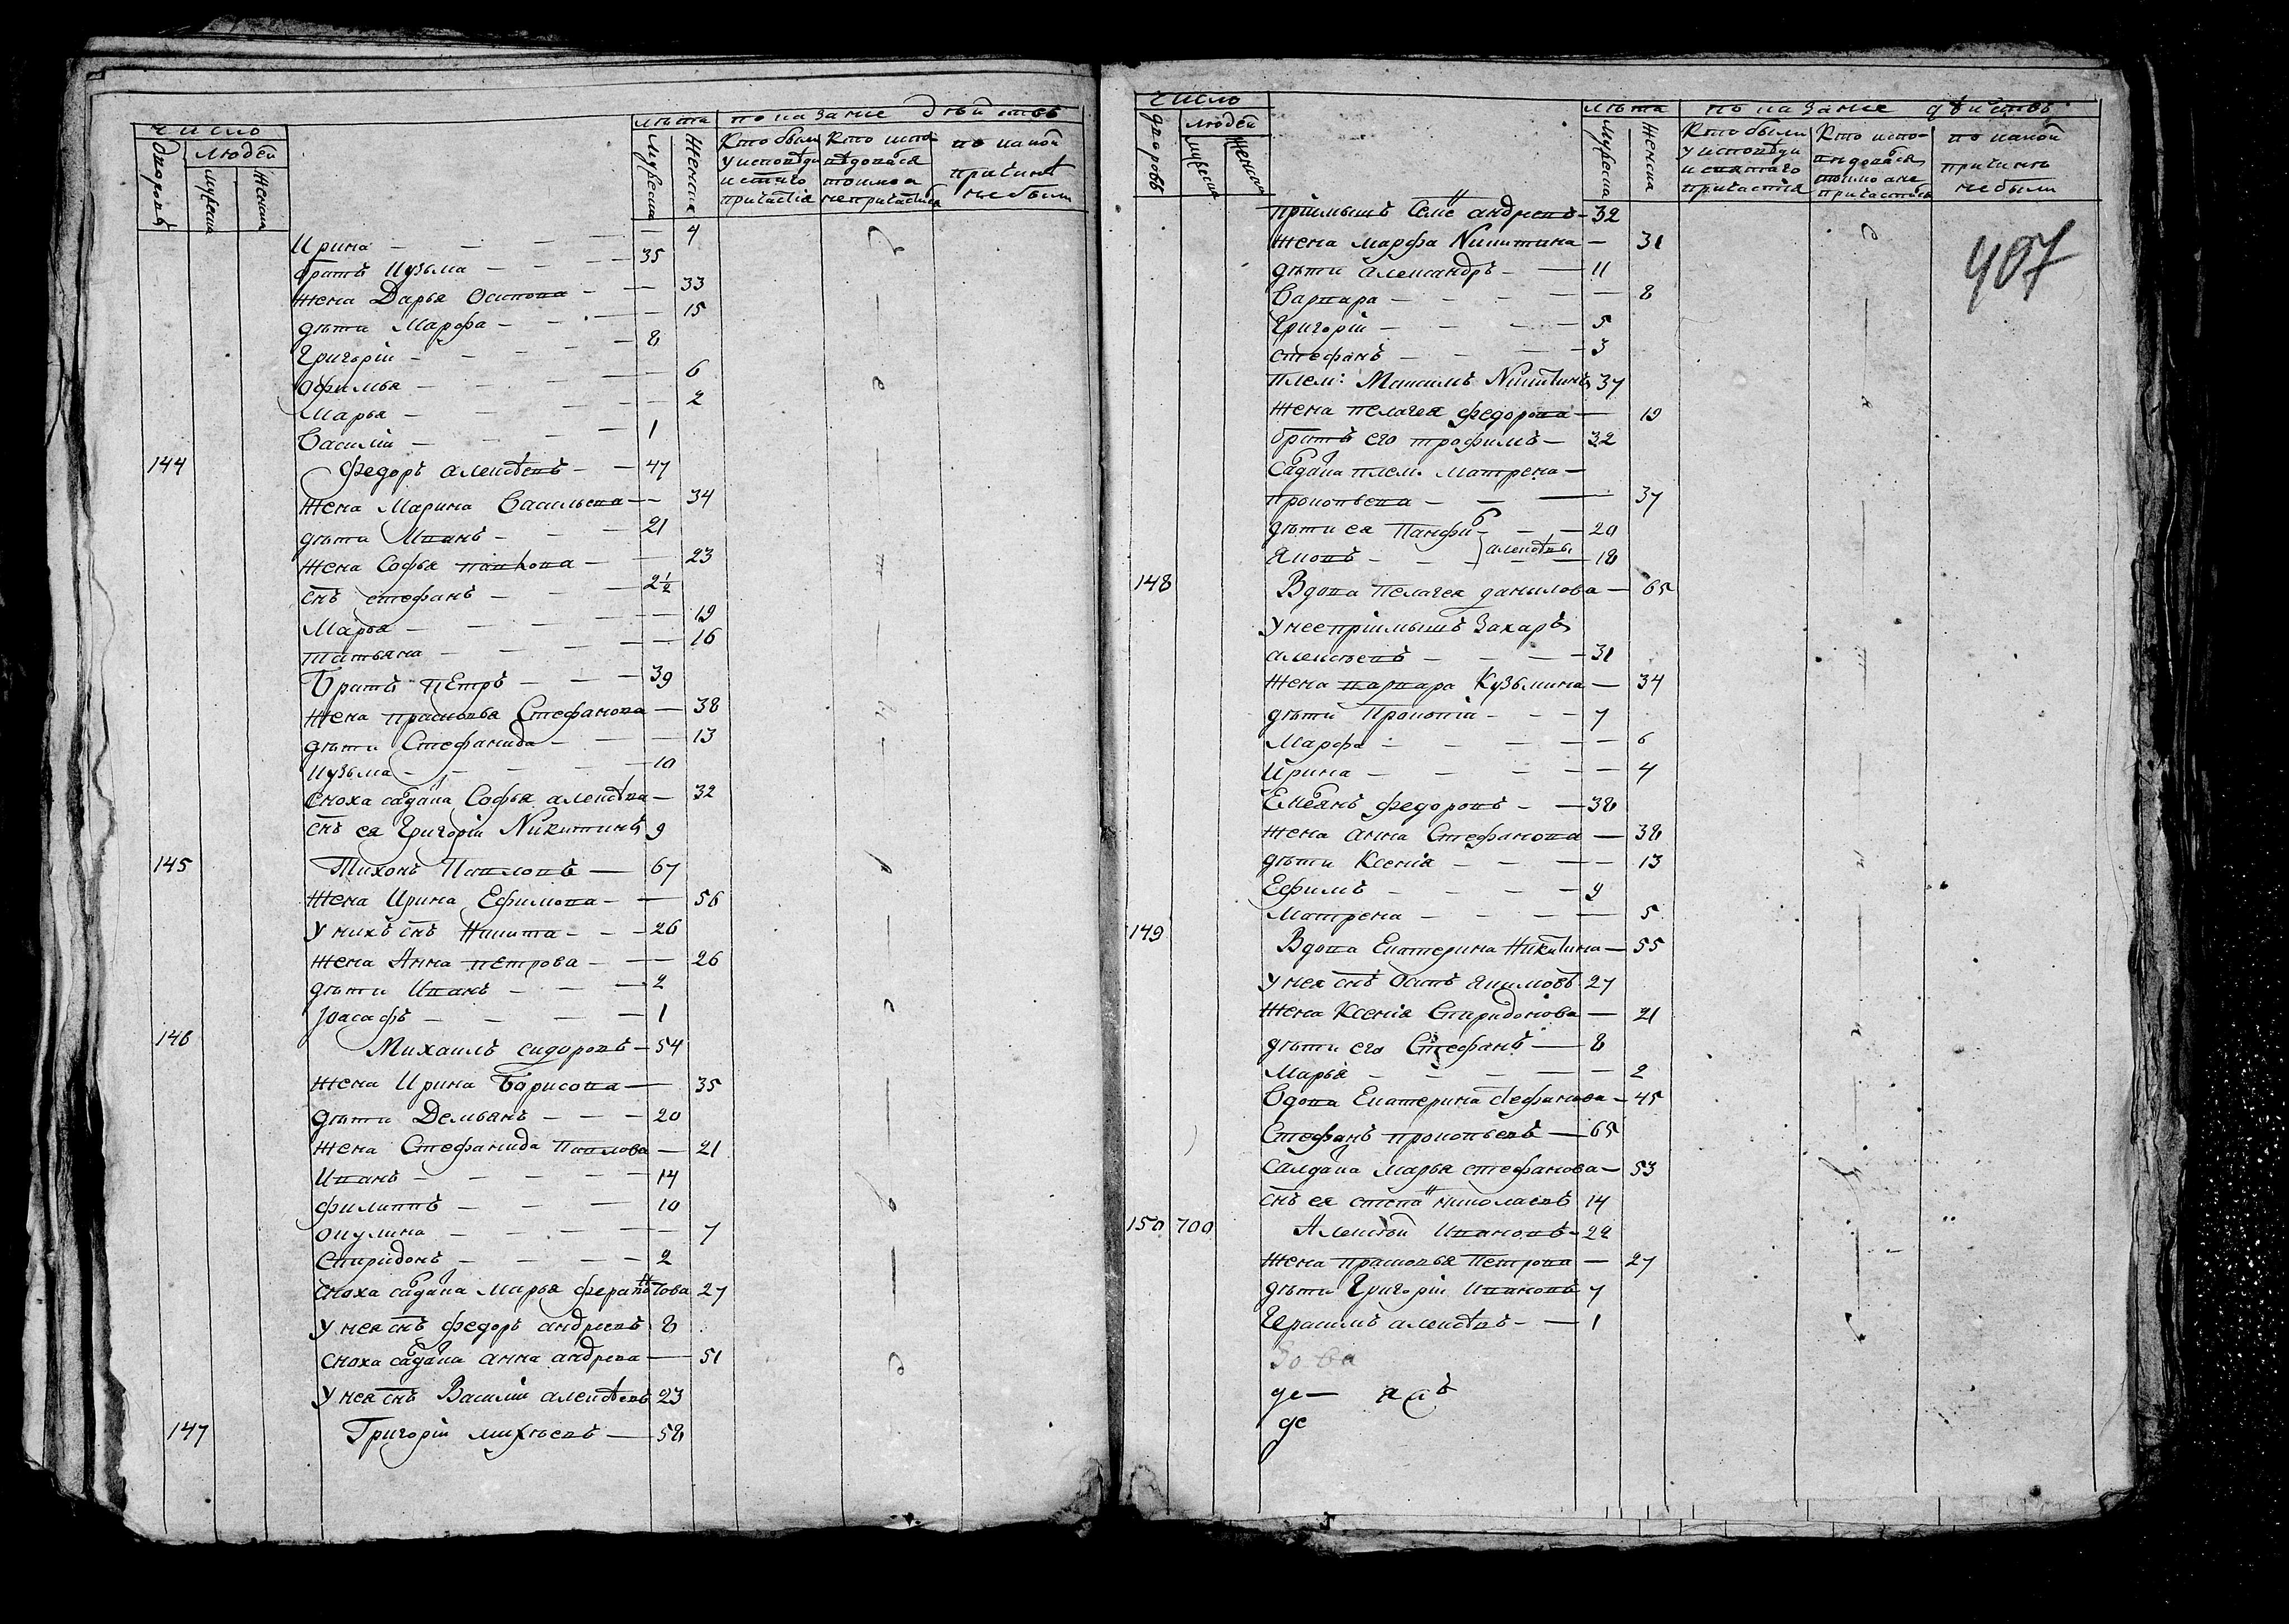 число
людей
дворовъ
мужеска
женска
лѣта
показание дѣйствъ
мужеска
женска
Кто были у исповѣди и с͠таго причастія
Кто испо вѣдовался токмо а не причастився
по какой причинѣ не были
Ирина - 4
братъ Кузьма - 35
жена Дарья Осипова - 33
дѣти Марфа - 15
Григорій - 8
Офимья - 6
Марья - 2
Василій - 1
144 Федоръ алексѣевъ - 47
жена Марина Васильева - 34
дѣти Иванъ - 21
жена Софья павлова - 23
сн͠ъ стефанъ - 2½
Марья - 19
татьяна - 16
Братъ пЕтръ - 39
жена прасковья Стефанова - 38
дѣти Стефанида - 13
Кузьма - 10
сноха садака Софья алексѣва - 32
сн͠ъ ея Григорій Никитинъ 9
145 Тихонъ Павловъ - 67
жена Ирина Ефимова - 56
у нихъ сн͠ъ Никита - 26
жена Анна пЕтрова - 26
дѣти Иванъ - 2
Іоасафъ - 1
146 Михаилъ сидоровъ - 54
жена Ирина Борисова - 35
дѣти Демьянъ - 20
жена Стефанида Павлова - 21
Иванъ - 14
филиппъ - 10
окулина - 7
Спиридонъ - 2
сноха садака Марья ферапонтова 27
у нея сн͠ъ федоръ андреевъ 8
сноха садака анна андрева - 51
у нея сн͠ъ Василій алексѣевъ 23
147 Григорій михѣевъ - 58
число
людей
дворовъ
мужеска
женска
лѣта
показание дѣйствъ
мужеска
женска
Кто были у исповѣди и святаго причастія
Кто испо- вѣдовался токмо а не причастився
по какой причинѣ не были
407
пріимышъ Семе андреевъ - 32
жена марфа Никитина - 31
дѣти александръ - 11
Варвара - 8
Григорій - 5
стефанъ - 3
плем: Максимъ Никитинъ 37
жена пелагея федорова - 19
братъ его трофимъ - 32
садака плем. матрена -
прокопьева - 37
дѣти ея Панфи - 20
Яковъ - алексѣвы - 18
148 Вдова пелагея данилова - 65
у нее пріимышъ Захаръ
алексеевъ - 31
жена варвара Кузьмина - 34
дѣти Прокопій - 7
Марфа - 6
Ирина - 4
Емеянъ федоровъ - 38
жена анна Стефанова - 38
дѣти Ксенія - 13
Ефимъ - 9
Матрена - 5
149 Вдова Екатерина Никитина - 55
у нея сн͠ъ Осипъ якимовъ 27
жена Ксенія Спиридонова - 21
дѣти его Стефанъ - 8
Марья - 2
Вдова Екатерина стефанова - 45
Стефанъ прокопьевъ - 65
салдака марья стефанова - 53
сн͠ъ ея степа николаевъ 14
150 700 Алексѣй Ивановъ - 22
жена прасковья Петрова - 27
дѣти Григорій Ивановъ 7
Герасимъ алексѣвъ - 1
де -
де